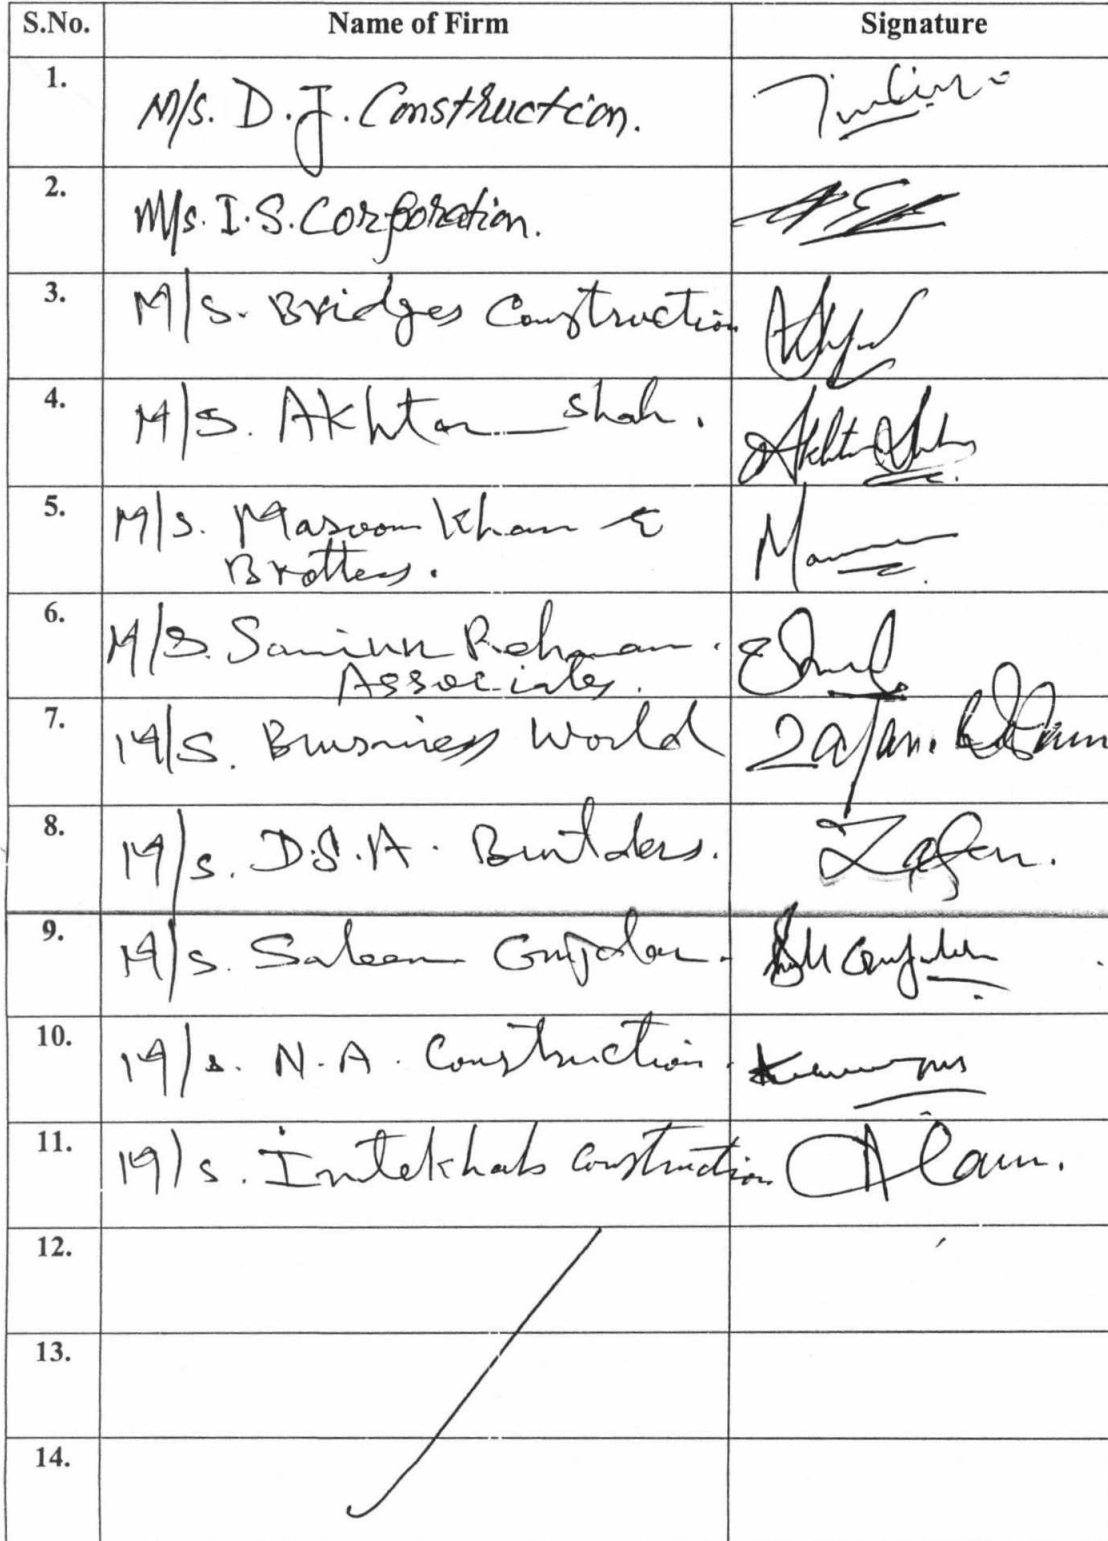 S.No. Name of Firm Signature
1. M/s. D.J. Construction.
2. M/s. I.S. Corporation.
3. M/S. Bridges Construction
4. M/S. Akhtar Shah. Akhtar Shah
5. M/S. Masoom Khan &
Brothers.
6. M/S. Rehman
Associates.
7. M/S. Business World Zafar. Alam
8. M/s. D.S.A. Builders. Zafar.
9. M/s. Saleem
10. M/s. N.A. Construction.
11. M/s. Intekhab Construction Alam.
12.
13.
14.